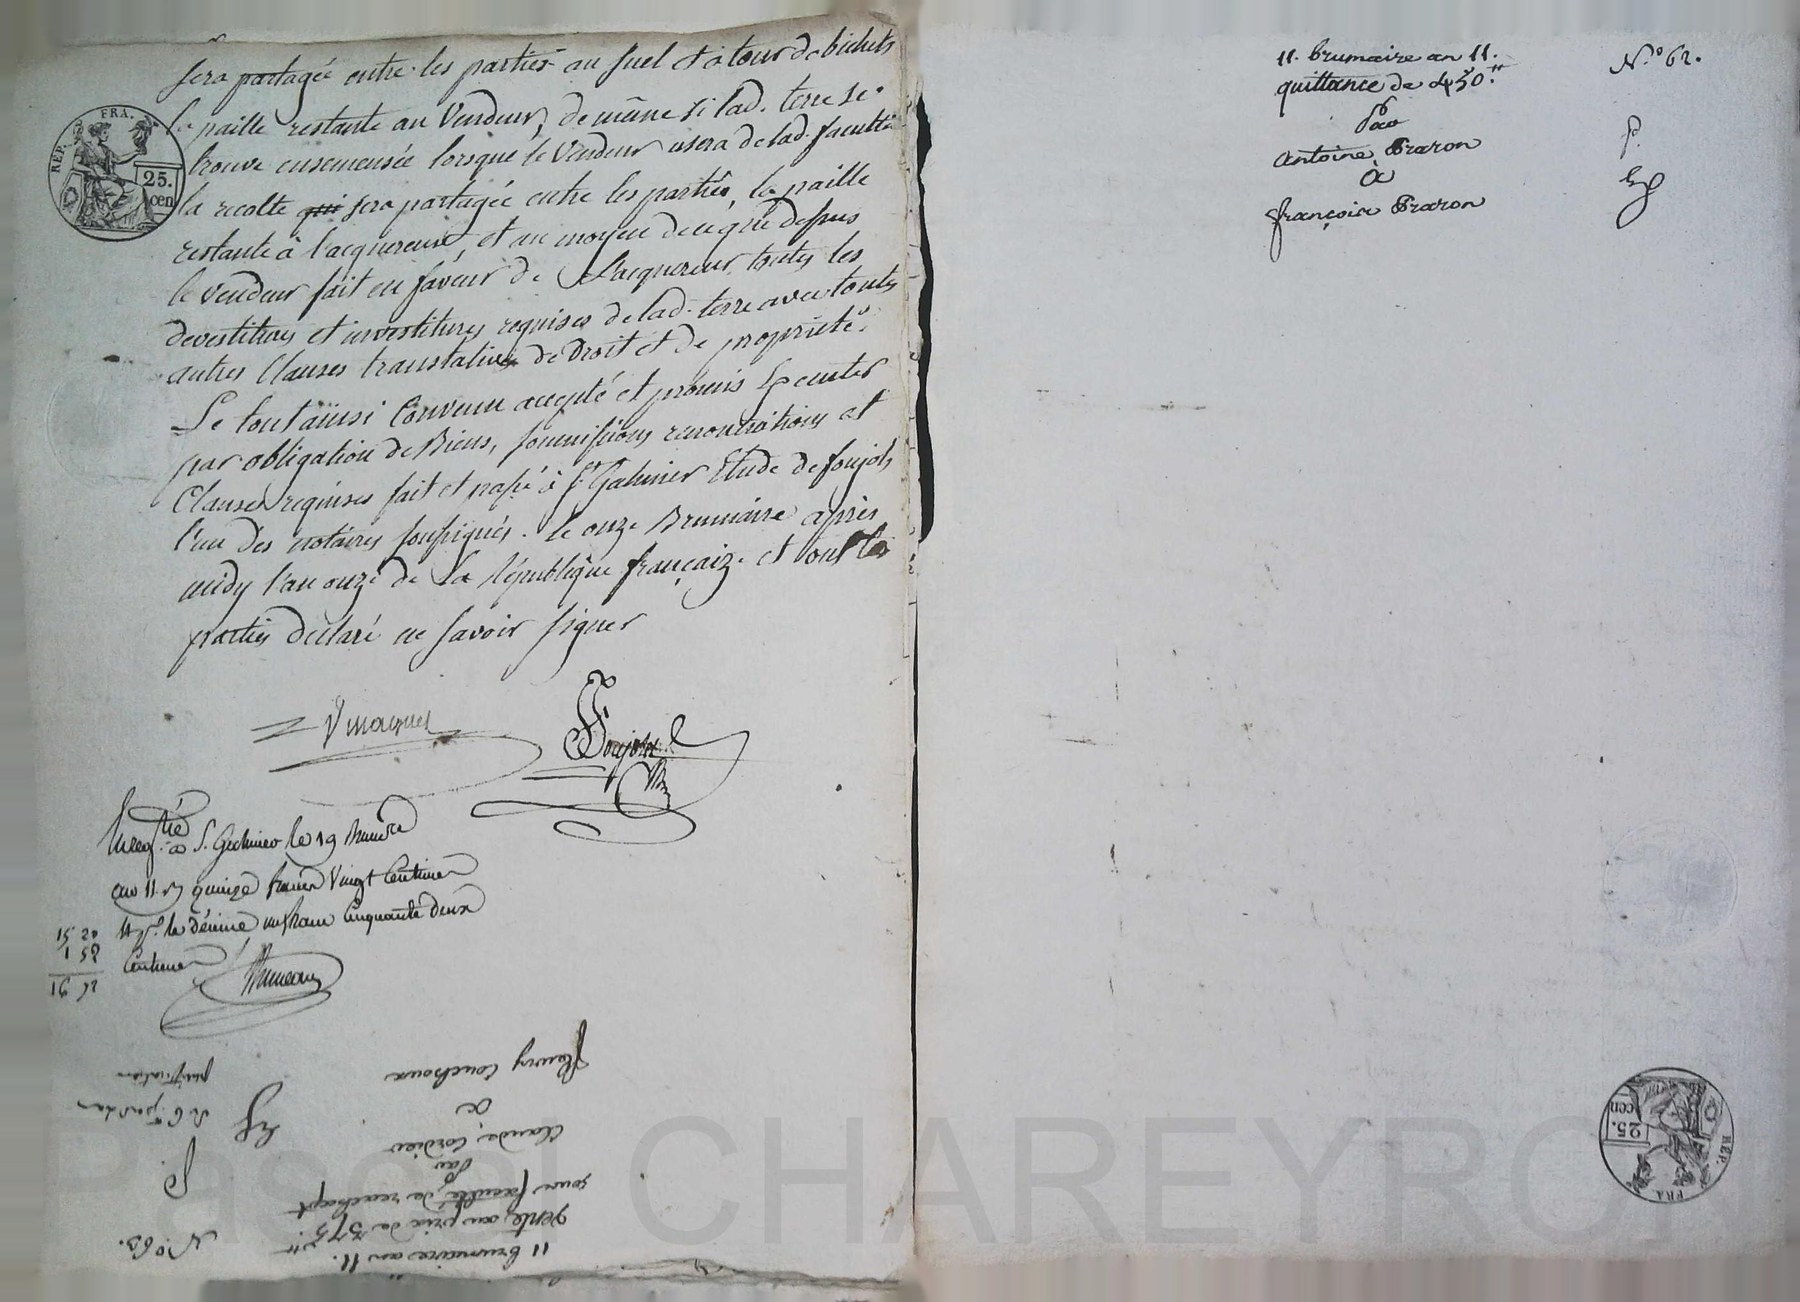 sera partagée entre les parties au suel et à tour de bichets
la paille restante au Vendeur, de même si lad. terre se
trouve ensemensée lorsque le Vendeur usera de lad. faculté
la recolte qui sera partagée entre les parties, la paille
restante à l'acquereur, et au moyen de ce que dessus
le vendeur fait en faveur de L'acquereur toutes les
devestitures et investitures requises de lad. terre avec toutes
autres Clauses translatives de Droit et de proprieté.
Le tout ainsi Convenu accepté et promis Executer
par obligation de Biens, soumissions renonciations et
Clauses requises fait et passé à St. Galmier Etude de foujols
l'un des notaires soussignés. le onze Brumaire après
midy l'an onze de La République française et ont les
parties declaré ne savoir signer
Foujols
REP. FRA.
25.
cen
à St. Galmier le 19 Brumre
an 11. quinze francs Vingt Centimes
la décime un franc Cinquante deux
Centimes
15 20
1 52
16 72
11 brumaire an 11.
N.º 63.
vente au prix de 375.#
sous faculté de reachapt
Par
Claude Cordier
à
fleury Couchoux
11. brumaire an 11.
N.º 62.
quittance de 450.#
Par
antoine Praron
P.
à
françois Praron
25.
cen
REP. FRA
Pascal CHAREYRON